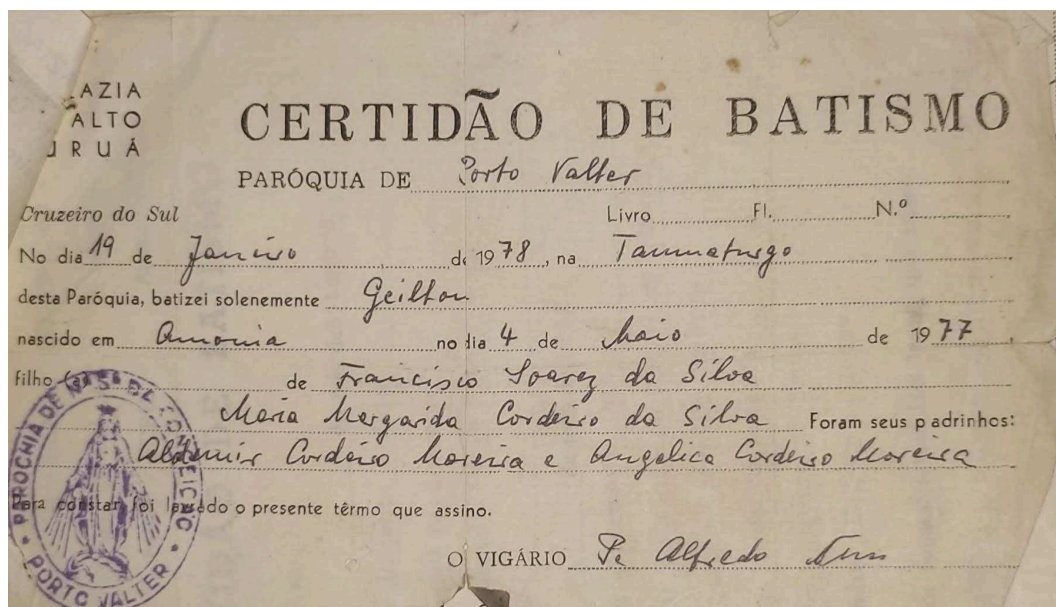 AZIA
ALTO
URUÁ
CERTIDÃO DE BATISMO
PARÓQUIA DE Porto Valter
Cruzeiro do Sul Livro Fl. N.º
No dia 19 de Janeiro de 1978, na Taumaturgo
desta Paróquia, batizei solenemente Geilton
nascido em Amonia no dia 4 de Maio de 1977.
filho de Francisco Soarez da Silva
Maria Margarida Cordeiro da Silva Foram seus padrinhos:
Aldemir Cordeiro Moreira e Angelica Cordeiro Moreira
Para constar, foi lavrado o presente têrmo que assino.
O VIGÁRIO Pe Alfredo
PAROCHIA DE N. Sª DA CONCEIÇÃO
PORTO VALTER